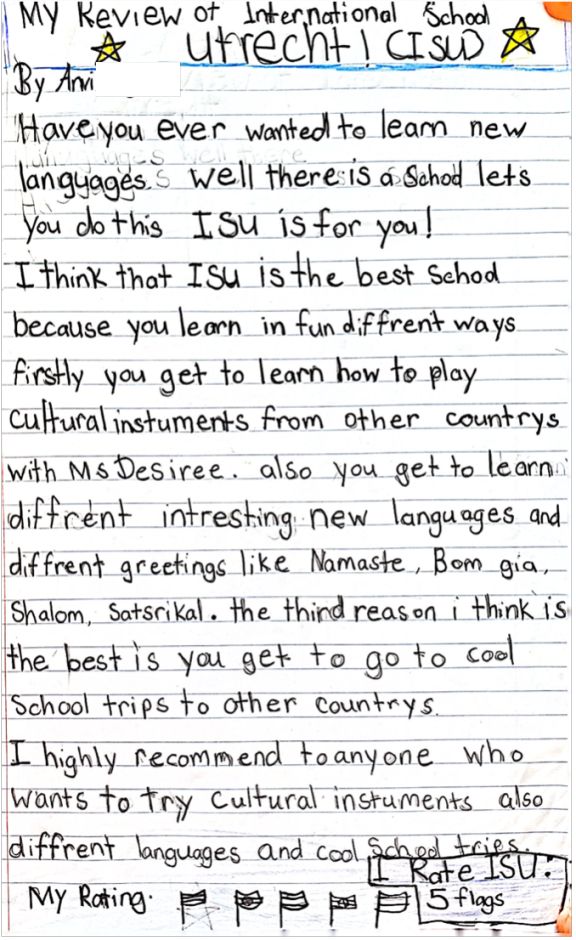 My Review of International School
Utrecht! (ISU)
By Anvi
Have you ever wanted to learn new
languages. well there is a School lets
you do this ISU is for you!
I think that ISU is the best School
because you learn in fun diffrent ways
firstly you get to learn how to play
cultural instuments from other countrys
with Ms Desiree. also you get to learn
diffrent intresting new languages and
diffrent greetings like Namaste, Bom gia,
Shalom, Satsrikal. the third reason i think is
the best is you get to go to cool
School trips to other countrys.
I highly recommend to anyone who
wants to try cultural instuments also
diffrent languages and cool School tries.
I Rate ISU:
My Rating.
5 flags